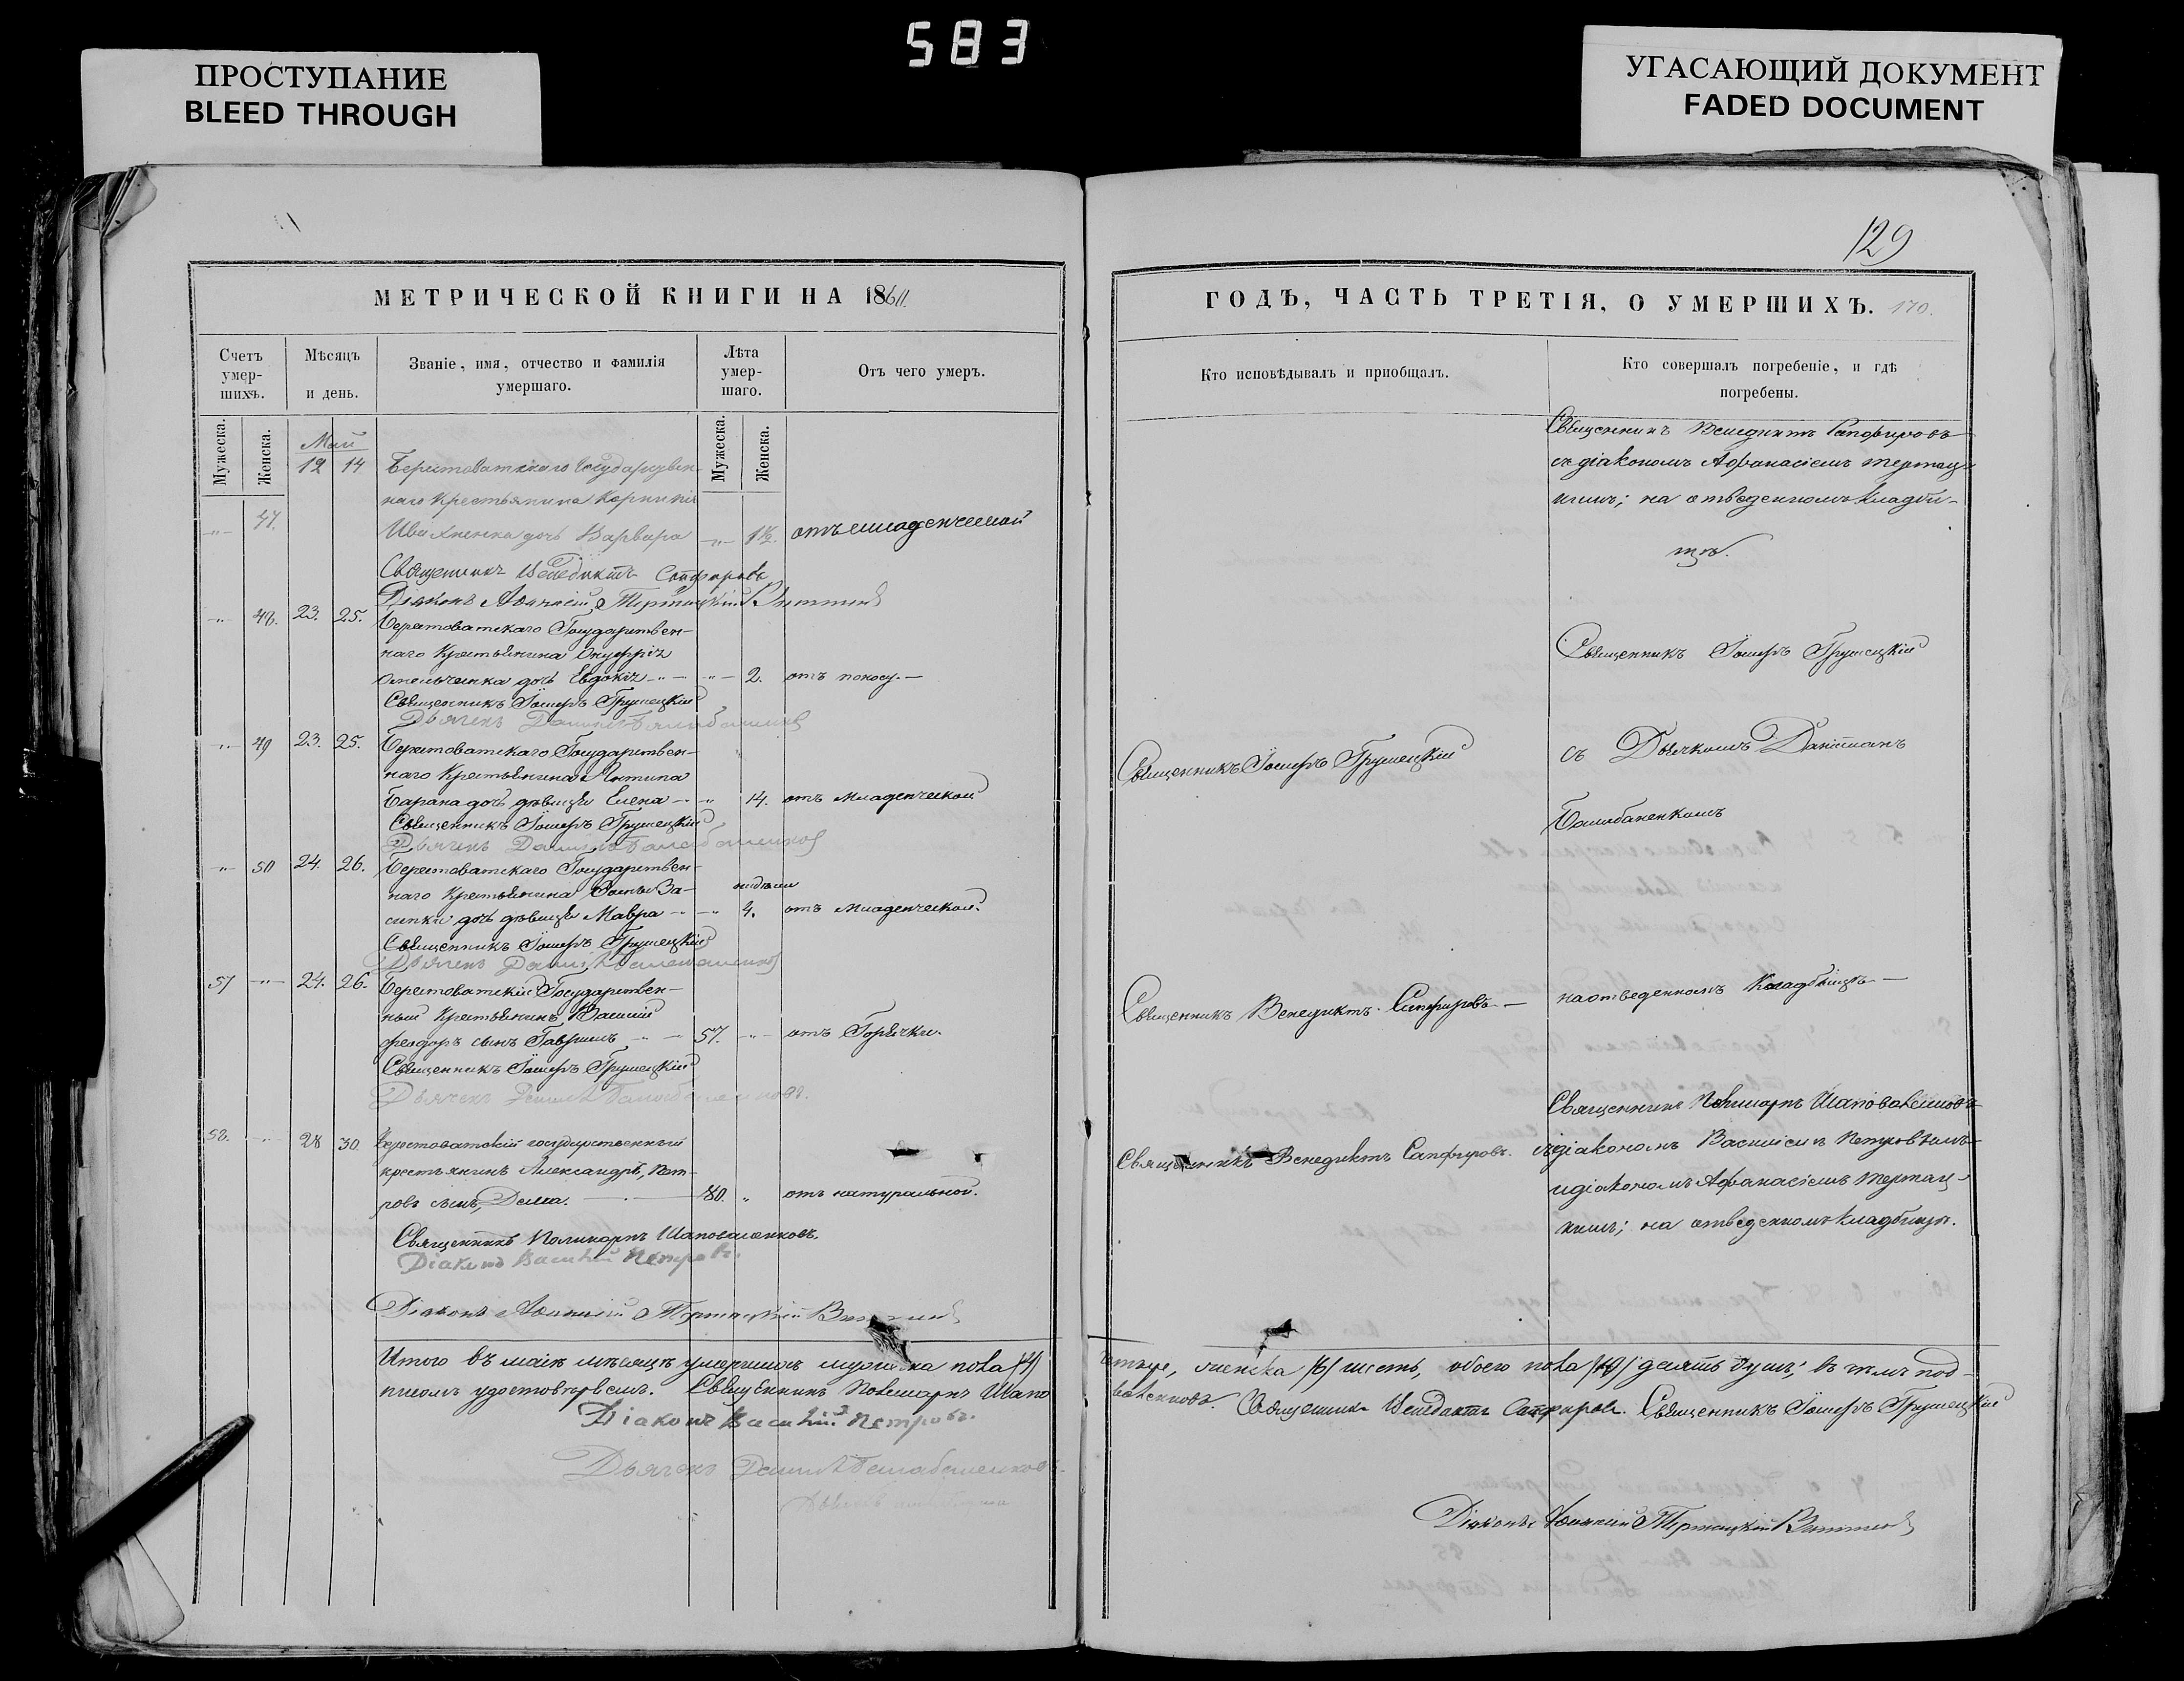 583
ПРОСТУПАНИЕ
BLEED THROUGH
УГАСАЮЩИЙ ДОКУМЕНТ
FADED DOCUMENT
МЕТРИЧЕСКОЙ КНИГИ НА 1860.
Счетъ умер-шихъ.
Мѣсяцъ и день.
Званіе, имя, отчество и фамилія умершаго.
Лѣта умер-шаго.
Отъ чего умеръ.
Мужеска.
Женска.
Мужеска.
Женска.
Май
12 14 Берестоватскаго Государствен-
наго Крестьянина Корнилія
47. дочь Варвара 1½. отъ младенческой
Священникъ Венедиктъ Сапфировъ
Діаконъ
48. 23. 25. Берестоватскаго Государствен-
наго Крестьянина Онуфрія
Омельченка дочь Евдокія 2. отъ поносу.
Священникъ Іосифъ Грушецкій
Дьячекъ Даніилъ
49 23. 25. Берестоватскаго Государствен-
наго Крестьянина Антипа
Барана дочь дѣвица Елена 14. отъ младенческой
Священникъ Іосифъ Грушецкій
Дьячекъ Даніилъ
50 24. 26. Берестоватскаго Государствен-
наго Крестьянина За-
сипки дочь дѣвица Мавра 4. недѣли отъ младенческой.
Священникъ Іосифъ Грушецкій
Дьячекъ Даніилъ
57 24. 26. Берестоватскій Государствен-
ный Крестьянинъ Василій
феодоръ сынъ Гавришъ 57. отъ Горячки.
Священникъ Іосифъ Грушецкій
Дьячекъ Даніилъ
58. 28 30. Берестоватскій государственный
крестьянинъ Александръ, Пет-
ровъ сынъ, Дема. 80. отъ натуральной.
Священникъ Поликарпъ Шаповаленковъ.
Діаконъ Василій Петровъ.
Діаконъ
Итого въ маіѣ мѣсяцѣ умершихъ мужеска пола /4/
писомъ удостовѣряемъ. Священникъ Поликарпъ Шапо
Діаконъ Василій Петровъ.
Дьячекъ Даніилъ
129
ГОДЪ, ЧАСТЬ ТРЕТІЯ, О УМЕРШИХЪ. 170.
Кто исповѣдывалъ и пріобщалъ.
Кто совершалъ погребеніе, и гдѣ погребены.
Священникъ Венедиктъ Сапфировъ
съ діакономъ Афанасіемъ Терпац-
кимъ; на отведенномъ кладби-
щѣ.
Священникъ Іосифъ Грушецкій
Священникъ Іосифъ Грушецкій
съ Дьячкомъ Даніиломъ
Балабаненкомъ
Священникъ Венедиктъ Сапфировъ
на отведенномъ Кладбищѣ
Священникъ Поликарпъ Шаповаленковъ
Священникъ Венедиктъ Сапфировъ.
съ діакономъ Василіемъ Петровымъ
и діакономъ Афанасіемъ Терпац-
кимъ; на отведенномъ кладбищѣ.
четыре, женска /6/ шесть, обоего пола /10/ десять душъ; въ чемъ под-
валенковъ. Священникъ Венедиктъ Сапфировъ. Священникъ Іосифъ Грушецкій
Діаконъ